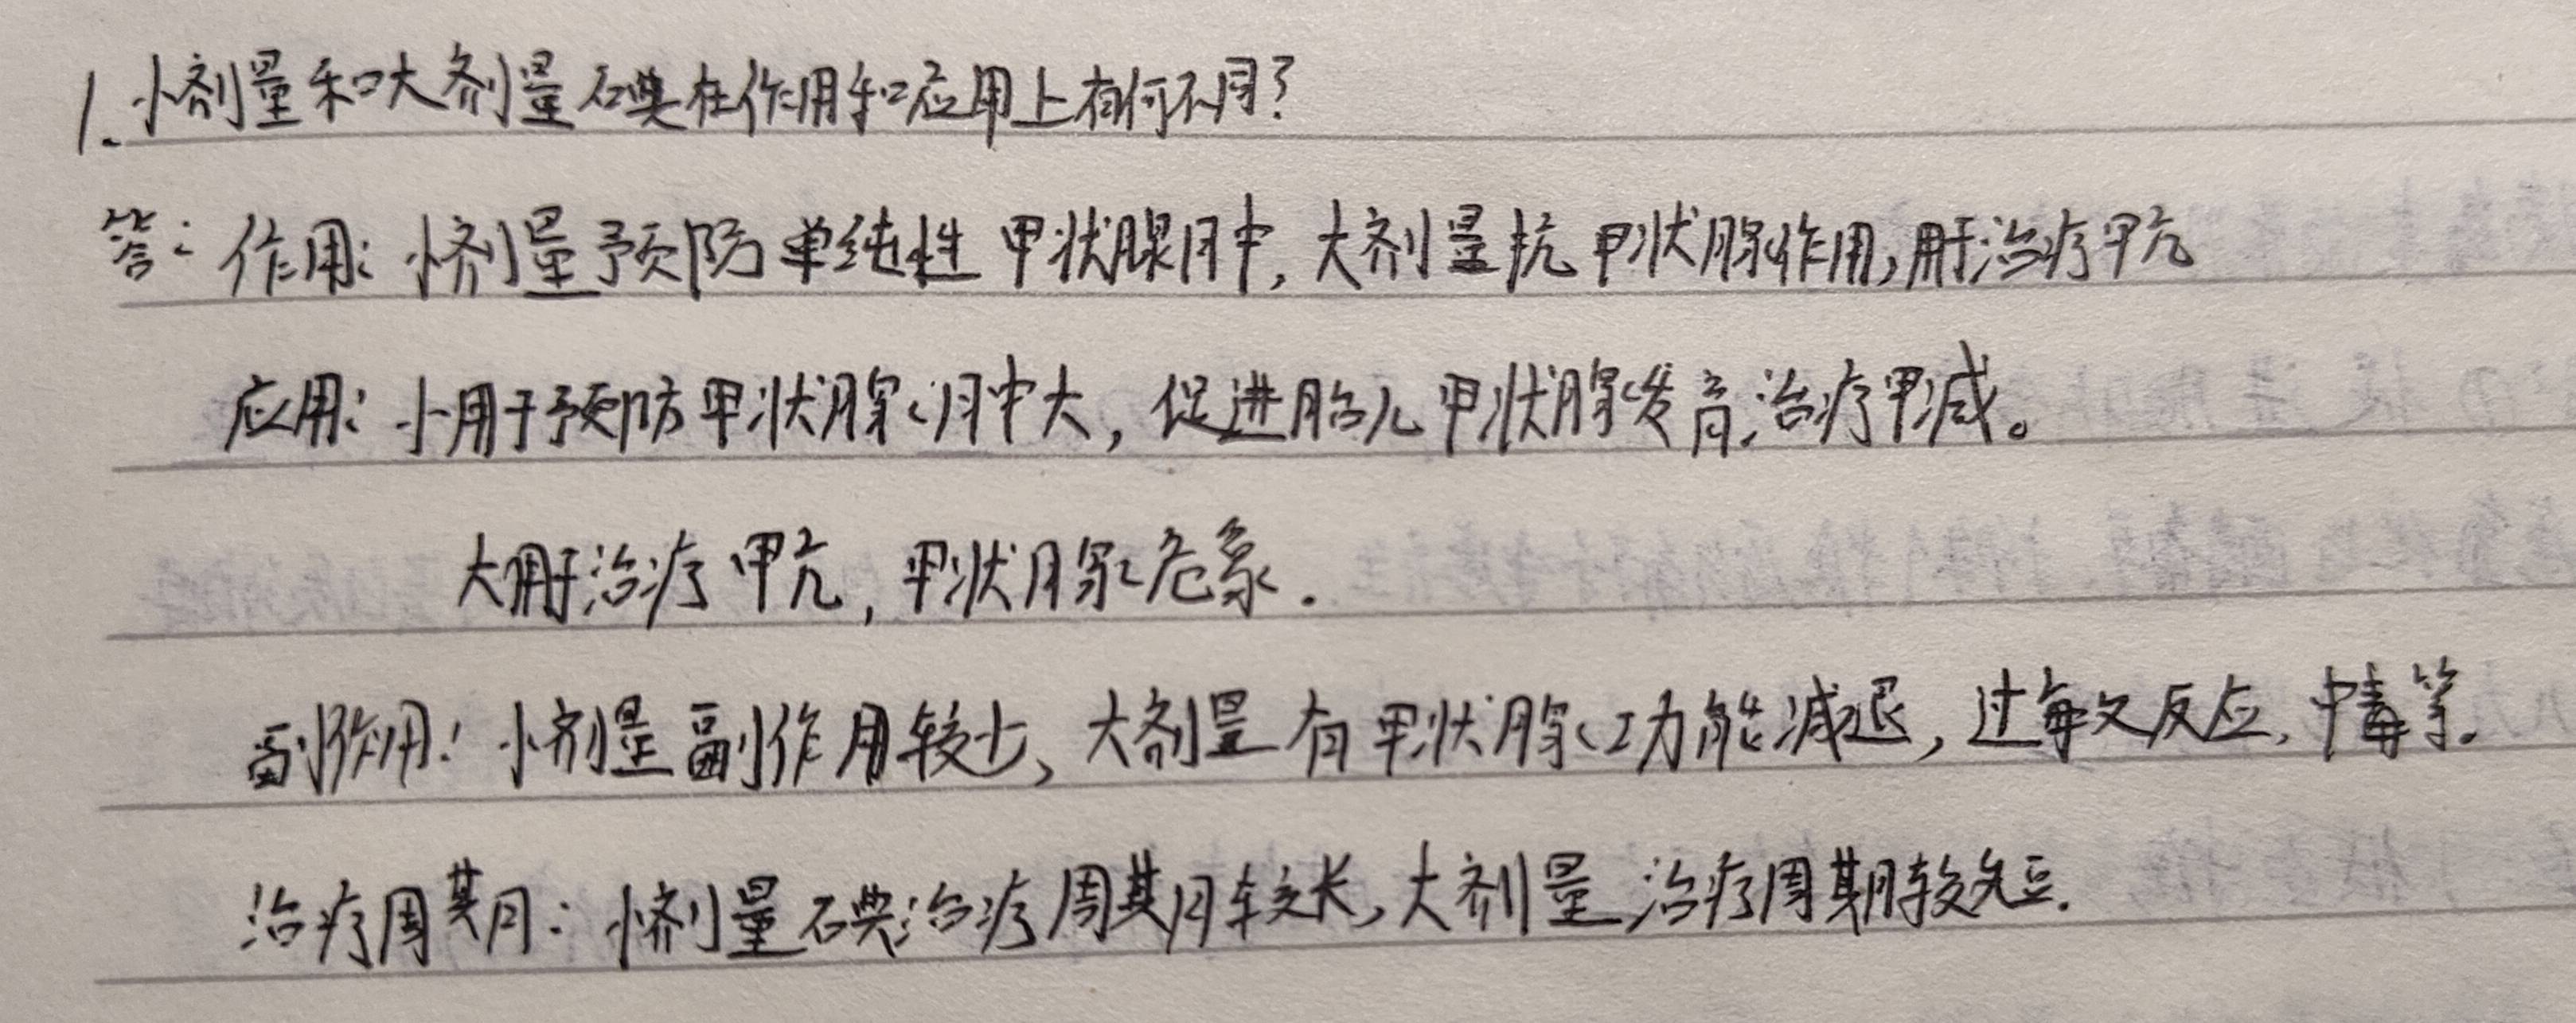 1. 小剂量和大剂量碘在作用和应用上有何不同?
答: 作用: 小剂量预防单纯性甲状腺肿, 大剂量抗甲状腺作用, 用于治疗甲亢
应用: 小用于预防甲状腺肿大, 促进胎儿甲状腺发育, 治疗甲减。
大用于治疗甲亢, 甲状腺危象.
副作用: 小剂量副作用较少, 大剂量有甲状腺功能减退, 过敏反应, 中毒等.
治疗周期: 小剂量碘治疗周期较长, 大剂量治疗周期较短.